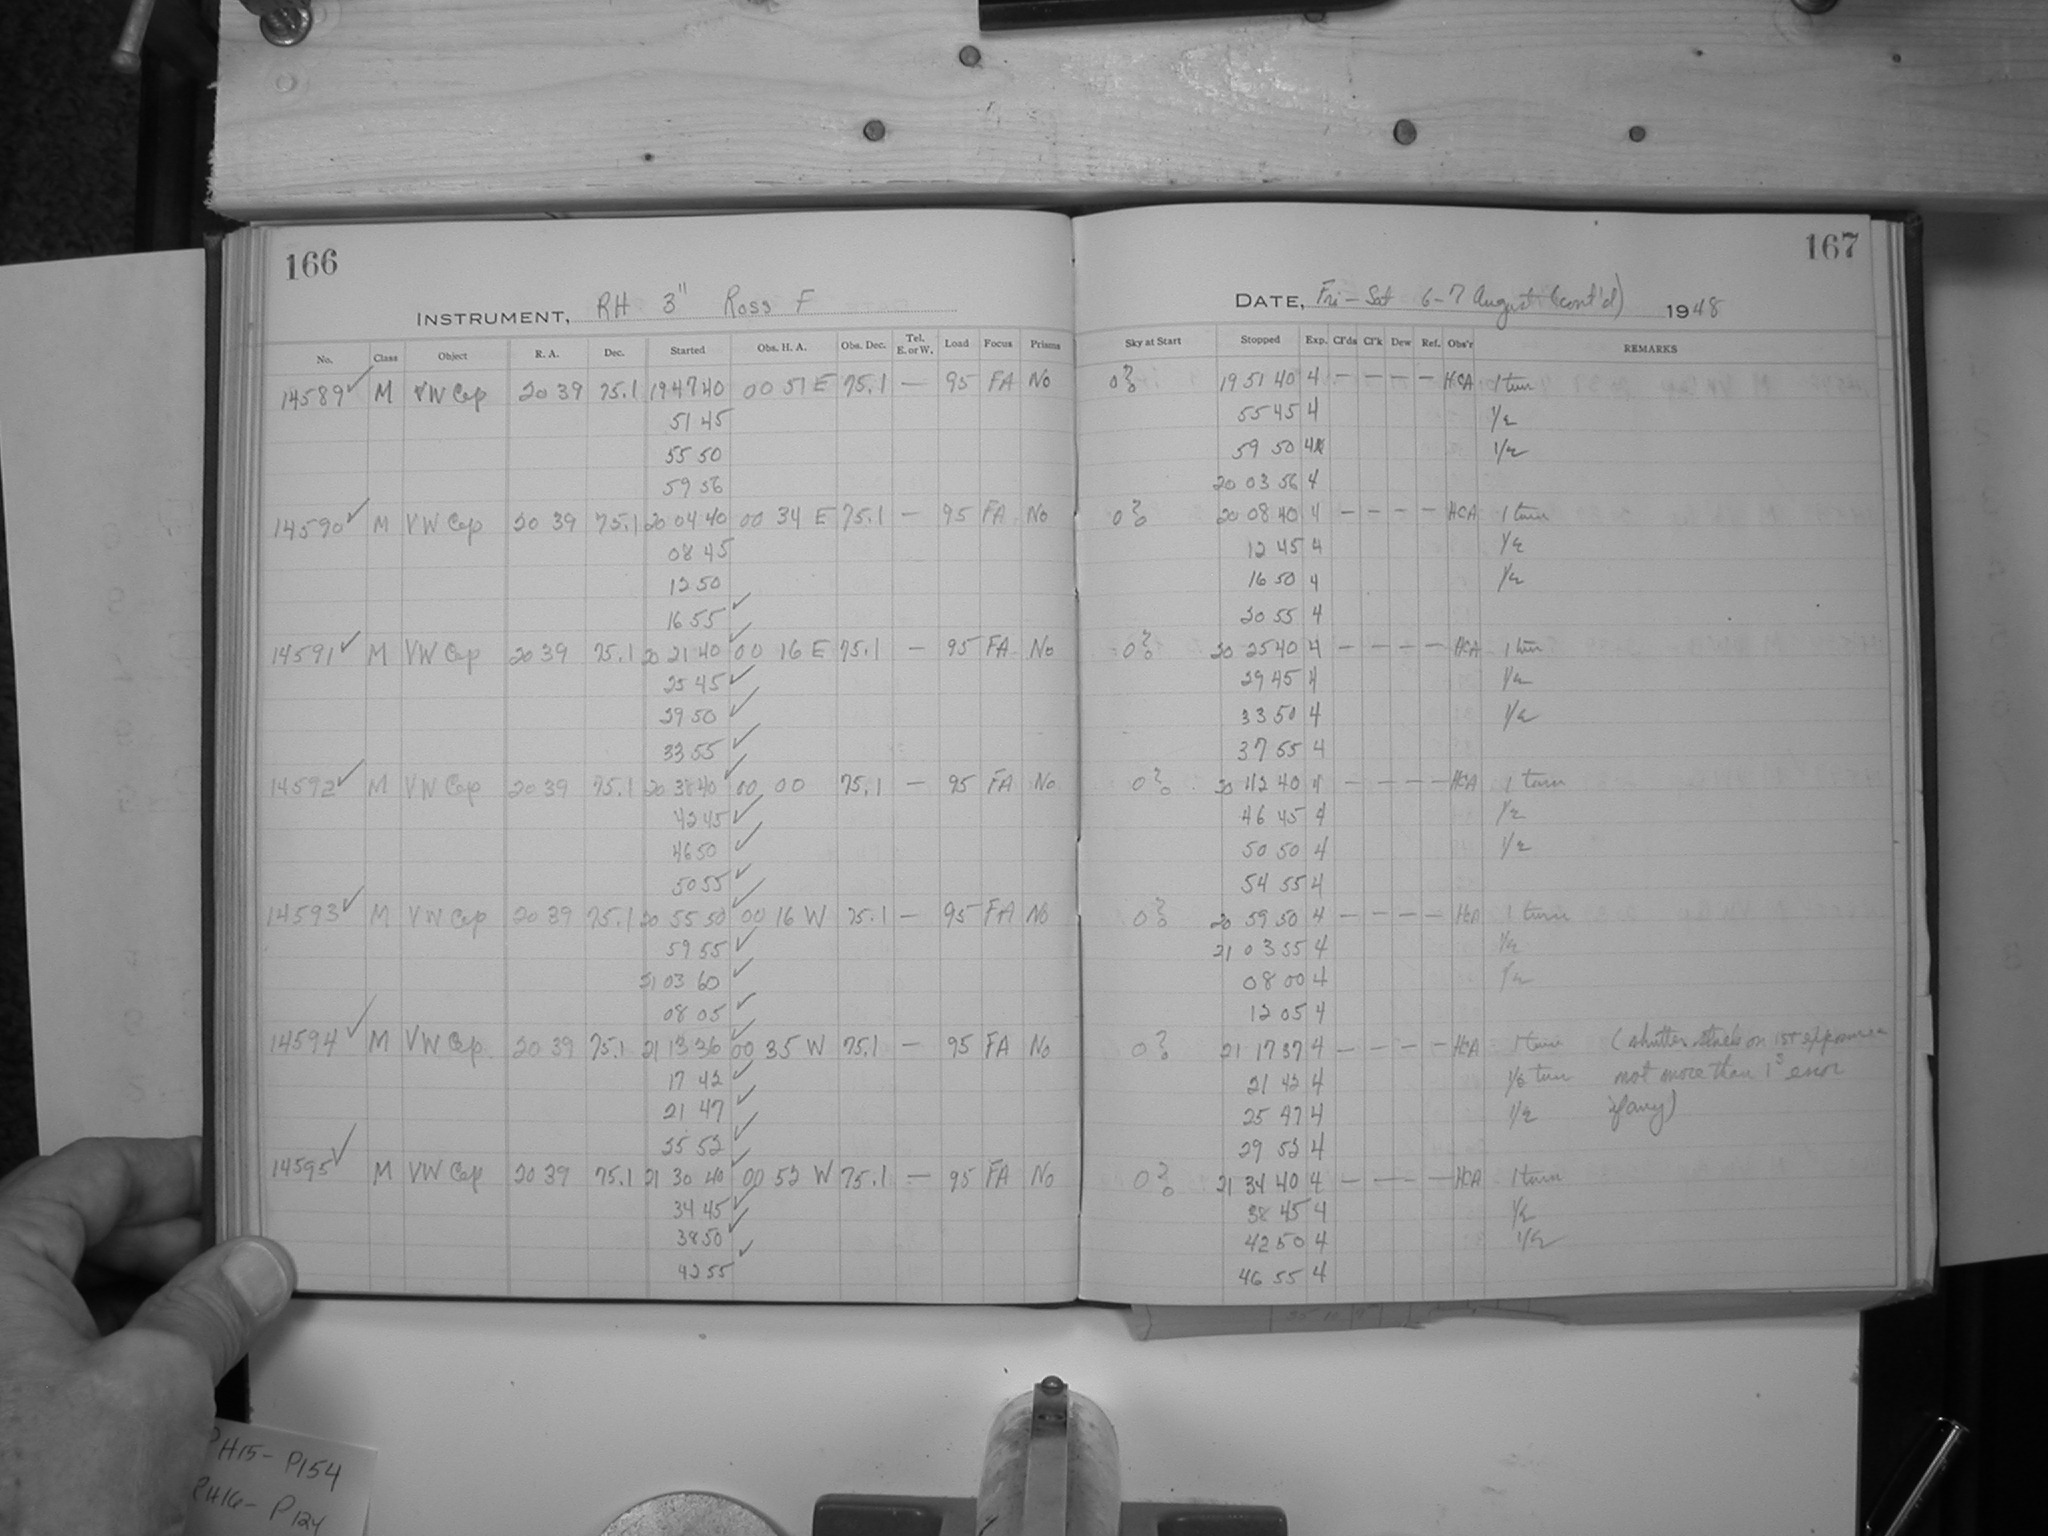 166
167
INSTRUMENT, RH 3" Ross F
DATE, Fri - Sat 6-7 August (cont'd) 1948
No. Class Object R. A. Dec. Started Obs. H. A. Obs. Dec. Tel. E. or W. Load Focus Prisms Sky at Start Stopped Exp. Cl'ds Cl'k Dew Ref. Obs'r REMARKS
14589 ✓ M VW Cep 20 39 75.1 19 47 40 00 51 E 75.1 — 95 FA No 19 51 40 4 — — — — HCA 1 turn
51 45 55 45 4
55 50 59 50 4
59 56 20 03 56 4
14590 ✓ M VW Cep 20 39 75.1 20 04 40 00 34 E 75.1 — 95 FA No 20 08 40 4 — — — — HCA 1 turn
08 45 12 45 4
12 50 16 50 4
16 55 ✓ 20 55 4
14591 ✓ M VW Cep 20 39 75.1 20 21 40 ✓ 00 16 E 75.1 — 95 FA No 20 25 40 4 — — — — HCA 1 turn
25 45 ✓ 29 45 4
29 50 ✓ 33 50 4
33 55 ✓ 37 55 4
14592 ✓ M VW Cep 20 39 75.1 20 38 40 ✓ 00 00 75.1 — 95 FA No 20 42 40 4 — — — — HCA 1 turn
42 45 ✓ 46 45 4
46 50 ✓ 50 50 4
50 55 ✓ 54 55 4
14593 ✓ M VW Cep 20 39 75.1 20 55 50 ✓ 00 16 W 75.1 — 95 FA No 20 59 50 4 — — — — HCA 1 turn
59 55 ✓ 21 03 55 4
21 03 60 ✓ 08 00 4
08 05 ✓ 12 05 4
14594 ✓ M VW Cep. 20 39 75.1 21 13 36 ✓ 00 35 W 75.1 — 95 FA No 21 17 37 4 — — — — HCA 1 turn (shutter stuck on 1st exposure
17 42 ✓ 21 42 4 1/6 turn not more than 1s error
21 47 ✓ 25 47 4 if any)
25 52 ✓ 29 52 4
14595 ✓ M VW Cep 20 39 75.1 21 30 40 ✓ 00 52 W 75.1 — 95 FA No 21 34 40 4 — — — — HCA 1 turn
34 45 ✓ 38 45 4
38 50 ✓ 42 50 4
42 55 ✓ 46 55 4
H15 - P154
H16 - P124